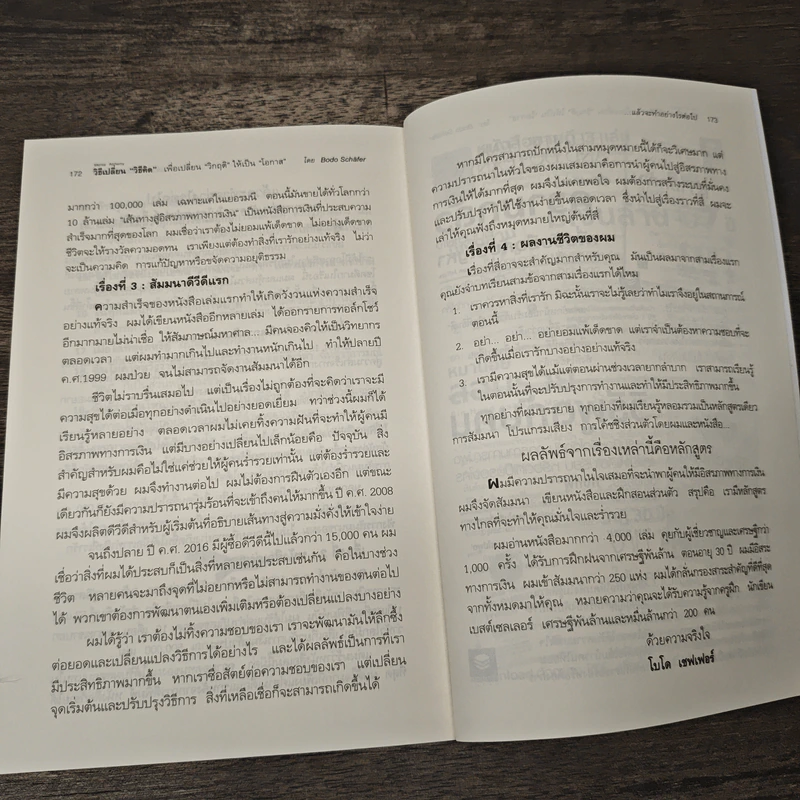 172 วิธีเปลี่ยน "วิธีคิด" เพื่อเปลี่ยน "วิกฤติ" ให้เป็น "โอกาส" โดย Bodo Schäfer
มากกว่า 100,000 เล่ม เฉพาะแค่ในเยอรมนี ตอนนี้มันขายได้ทั่วโลกกว่า
10 ล้านเล่ม "เส้นทางสู่อิสรภาพทางการเงิน" เป็นหนังสือการเงินที่ประสบความ
สำเร็จมากที่สุดของโลก ผมเชื่อว่าเราต้องไม่ยอมแพ้เด็ดขาด ไม่อย่างเด็ดขาด
ชีวิตจะให้รางวัลความอดทน เราเพียงแต่ต้องทำสิ่งที่เรารักอย่างแท้จริง ไม่ว่า
จะเป็นความคิด การแก้ปัญหาหรือขจัดความอยุติธรรม
เรื่องที่ 3 : สัมมนาดีวีดีแรก
ความสำเร็จของหนังสือเล่มแรกทำให้เกิดวังวนแห่งความสำเร็จ
อย่างแท้จริง ผมได้เขียนหนังสืออีกหลายเล่ม ได้ออกรายการทอล์กโชว์
อีกมากมายไม่น่าเชื่อ ให้สัมภาษณ์มหาศาล... มีคนจองคิวให้เป็นวิทยากร
ตลอดเวลา แต่ผมทำมากเกินไปและทำงานหนักเกินไป ทำให้ปลายปี
ค.ศ.1999 ผมป่วย จนไม่สามารถจัดงานสัมมนาได้อีก
ชีวิตไม่ราบรื่นเสมอไป แต่เป็นเรื่องไม่ถูกต้องที่จะคิดว่าเราจะมี
ความสุขได้ต่อเมื่อทุกอย่างดำเนินไปอย่างยอดเยี่ยม ทว่าช่วงนี้ผมก็ได้
เรียนรู้หลายอย่าง ตลอดเวลาผมไม่เคยทิ้งความฝันที่จะทำให้ผู้คนมี
อิสรภาพทางการเงิน แต่มีบางอย่างเปลี่ยนไปเล็กน้อยคือ ปัจจุบัน สิ่ง
สำคัญสำหรับผมคือไม่ใช่แค่ช่วยให้ผู้คนร่ำรวยเท่านั้น แต่ต้องร่ำรวยและ
มีความสุขด้วย ผมจึงทำงานต่อไป ผมไม่ต้องการฝืนตัวเองอีก แต่ขณะ
เดียวกันก็ยังมีความปรารถนารุ่มร้อนที่จะเข้าถึงคนให้มากขึ้น ปี ค.ศ. 2008
ผมจึงผลิตดีวีดีสำหรับผู้เริ่มต้นที่อธิบายเส้นทางสู่ความมั่งคั่งให้เข้าใจง่าย
จนถึงปลาย ปี ค.ศ. 2016 มีผู้ซื้อดีวีดีนี้ไปแล้วกว่า 15,000 คน ผม
เชื่อว่าสิ่งที่ผมได้ประสบก็เป็นสิ่งที่หลายคนประสบเช่นกัน คือในบางช่วง
ชีวิต หลายคนจะมาถึงจุดที่ไม่อยากหรือไม่สามารถทำงานของตนต่อไป
ได้ พวกเขาต้องการพัฒนาตนเองเพิ่มเติมหรือต้องเปลี่ยนแปลงบางอย่าง
ผมได้รู้ว่า เราต้องไม่ทิ้งความชอบของเรา เราจะพัฒนามันให้ลึกซึ้ง
ต่อยอดและเปลี่ยนแปลงวิธีการได้อย่างไร และได้ผลลัพธ์เป็นการที่เรา
มีประสิทธิภาพมากขึ้น หากเราซื่อสัตย์ต่อความชอบของเรา แต่เปลี่ยน
จุดเริ่มต้นและปรับปรุงวิธีการ สิ่งที่เหลือเชื่อก็จะสามารถเกิดขึ้นได้
แล้วจะทำอย่างไรต่อไป 173
หากมีใครสามารถปักหนึ่งในสามหมุดหมายนี้ได้ก็จะวิเศษมาก แต่
ความปรารถนาในหัวใจของผมเสมอมาคือการนำผู้คนไปสู่อิสรภาพทาง
การเงินให้ได้มากที่สุด ผมจึงไม่เคยพอใจ ผมต้องการสร้างระบบที่มั่นคง
และปรับปรุงทำให้ใช้งานง่ายขึ้นตลอดเวลา ซึ่งนำไปสู่เรื่องราวที่สี่ ผมจะ
เล่าให้คุณฟังถึงหมุดหมายใหญ่ต้นที่สี่
เรื่องที่ 4 : ผลงานชีวิตของผม
เรื่องที่สี่อาจจะสำคัญมากสำหรับคุณ มันเป็นผลมาจากสามเรื่องแรก
คุณยังจำบทเรียนสามข้อจากสามเรื่องแรกได้ไหม
1. เราควรหาสิ่งที่เรารัก มิฉะนั้นเราจะไม่รู้เลยว่าทำไมเราจึงอยู่ในสถานการณ์
ตอนนี้
2. อย่า... อย่า... อย่ายอมแพ้เด็ดขาด แต่เราจำเป็นต้องหาความชอบที่จะ
เกิดขึ้นเมื่อเรารักบางอย่างอย่างแท้จริง
3. เรามีความสุขได้แม้แต่ตอนผ่านช่วงเวลายากลำบาก เราสามารถเรียนรู้
ในตอนนั้นที่จะปรับปรุงการทำงานและทำให้มีประสิทธิภาพมากขึ้น
ทุกอย่างที่ผมบรรยาย ทุกอย่างที่ผมเรียนรู้หลอมรวมเป็นหลักสูตรเดียว
การสัมมนา โปรแกรมเสียง การโค้ชชิ่งส่วนตัวโดยผมและหนังสือ...
ผลลัพธ์จากเรื่องเหล่านี้คือหลักสูตร
ผมมีความปรารถนาในใจเสมอที่จะนำพาผู้คนให้มีอิสรภาพทางการเงิน
ผมจึงจัดสัมมนา เขียนหนังสือและฝึกสอนส่วนตัว สรุปคือ เรามีหลักสูตร
ทางไกลที่จะทำให้คุณมั่นใจและร่ำรวย
ผมอ่านหนังสือมากกว่า 4,000 เล่ม คุยกับผู้เชี่ยวชาญและเศรษฐีกว่า
1,000 ครั้ง ได้รับการฝึกฝนจากเศรษฐีพันล้าน ตอนอายุ 30 ปี ผมมีอิสระ
ทางการเงิน ผมเข้าสัมมนากว่า 250 แห่ง ผมได้กลั่นกรองสาระสำคัญที่ดีที่สุด
จากทั้งหมดมาให้คุณ หมายความว่าคุณจะได้รับความรู้จากครูฝึก นักเขียน
เบสต์เซลเลอร์ เศรษฐีพันล้านและหมื่นล้านกว่า 200 คน
ด้วยความจริงใจ
โบโด เชฟเฟอร์